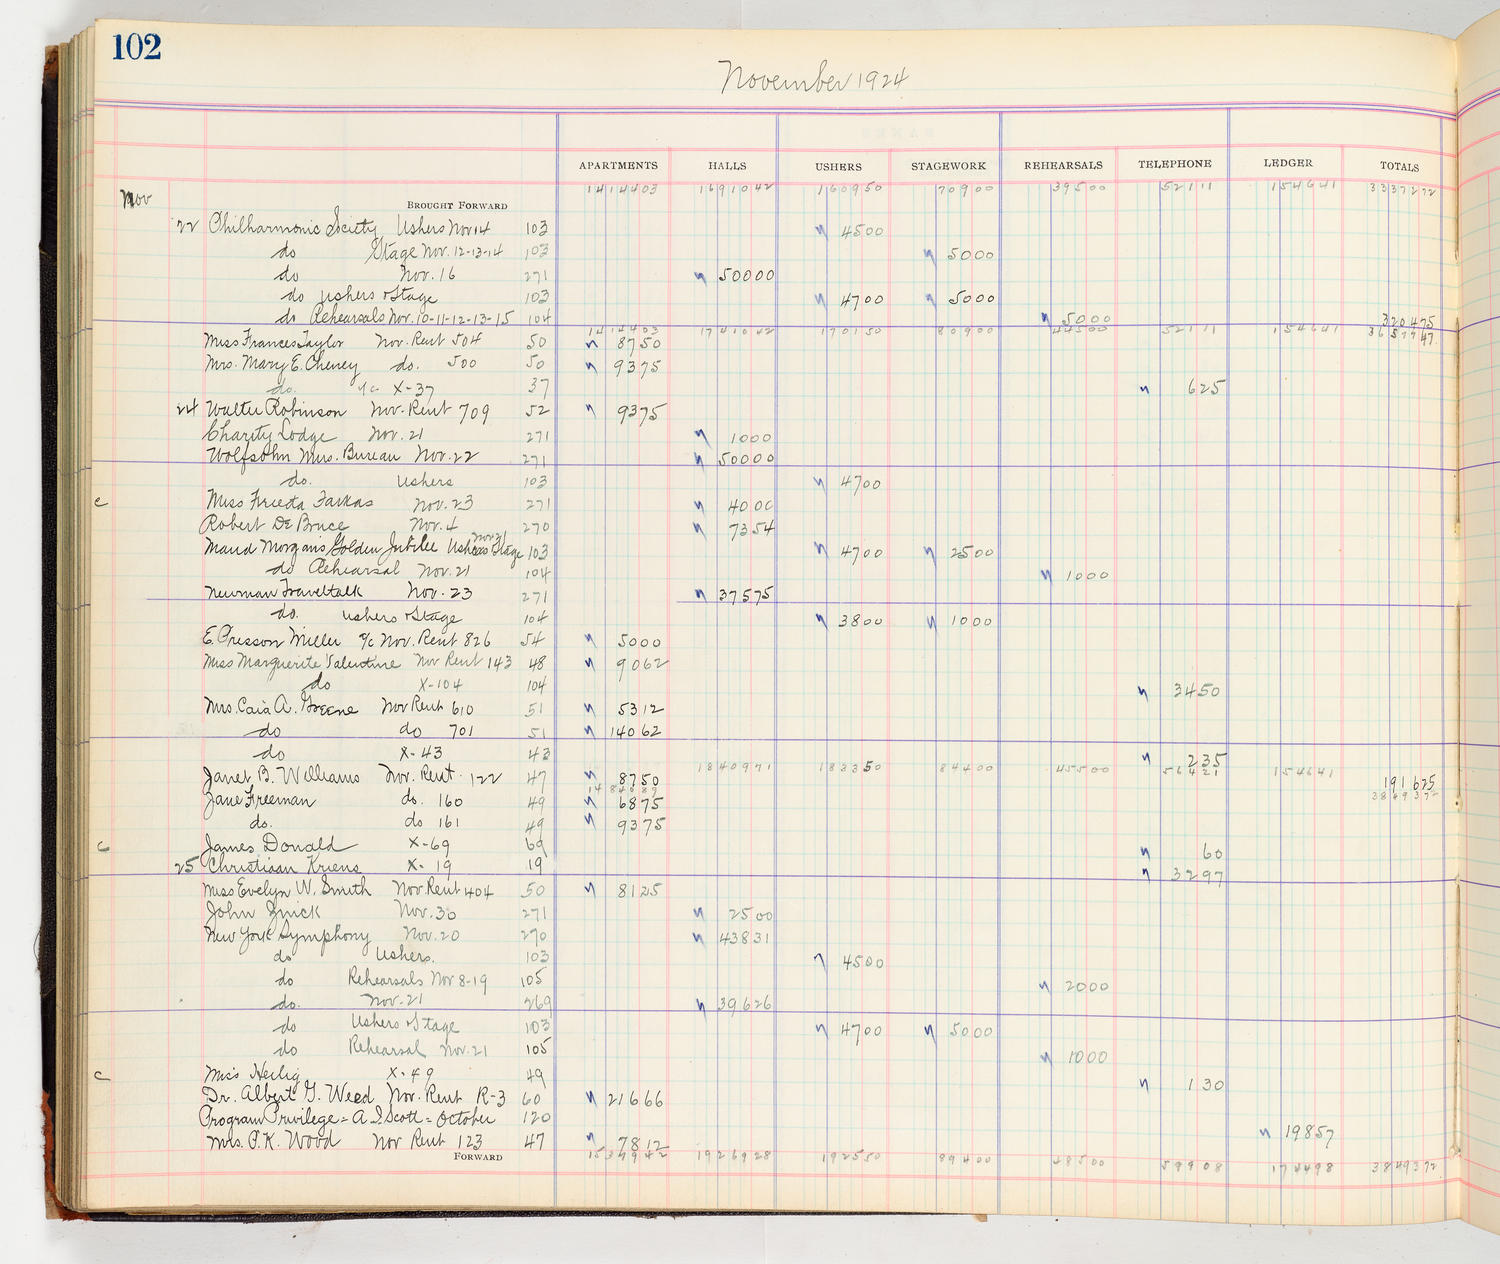 102
November 1924
APARTMENTS HALLS USHERS STAGEWORK REHEARSALS TELEPHONE LEDGER TOTALS
Nov BROUGHT FORWARD 1414403 1691042 160950 70900 39500 52111 154641 3337272
22 Philharmonic Society Ushers Nov 14 103 4500
do Stage Nov. 12-13-14 103 5000
do Nov. 16 271 50000
do Ushers + Stage 103 4700 5000
do Rehearsals Nov. 10-11-12-13-15 104 5000 320475
1414403 1741042 170150 80900 44500 52111 154641 3657747
Miss Frances Taylor Nov. Rent 504 50 8750
Mrs. Mary E. Cheney do. 500 50 9375
do. a/c X-37 37 625
24 Walter Robinson Nov. Rent 709 52 9375
Charity Lodge Nov. 21 271 1000
Wolfsohn Mus. Bureau Nov. 22 271 50000
do. Ushers 103 4700
c Miss Frieda Farkas Nov. 23 271 4000
Robert De Bruce Nov. 4 270 7354
Maud Morgan's Golden Jubilee Ushers Stage Nov 21 103 4700 2500
do Rehearsal Nov. 21 104 1000
Newman Traveltalk Nov. 23 271 37575
do. Ushers + Stage 104 3800 1000
E. Presson Miller a/c Nov. Rent 826 54 5000
Miss Marguerite Valentine Nov Rent 143 48 9062
do X-104 104 3450
Mrs. Caia A. Greene Nov Rent 610 51 5312
do do 701 51 14062
do X-43 43 235
1840971 183350 84400 45500 56421 154641
Janet B. Williams Nov. Rent 122 47 8750 191625
1484089 3849372
Jane Freeman do. 160 49 6875
do. do 161 49 9375
c James Donald X-69 69 60
25 Christiaan Kriens X-19 19 3297
Miss Evelyn W. Smith Nov Rent 404 50 8125
John Zuick Nov. 30 271 2500
New York Symphony Nov. 20 270 43831
do Ushers. 103 4500
do Rehearsals Nov 8-19 105 2000
do. Nov. 21 269 39626
do Ushers + Stage 103 4700 5000
do Rehearsal Nov. 21 105 1000
c Miss Heilig X-49 49 130
Dr. Albert G. Weed Nov. Rent R-3 60 21666
Program Privilege = A. I. Scott = October 120 19857
Mrs. P. K. Wood Nov Rent 123 47 7812
FORWARD 1537942 1926928 192550 89400 48500 59908 174498 3849372